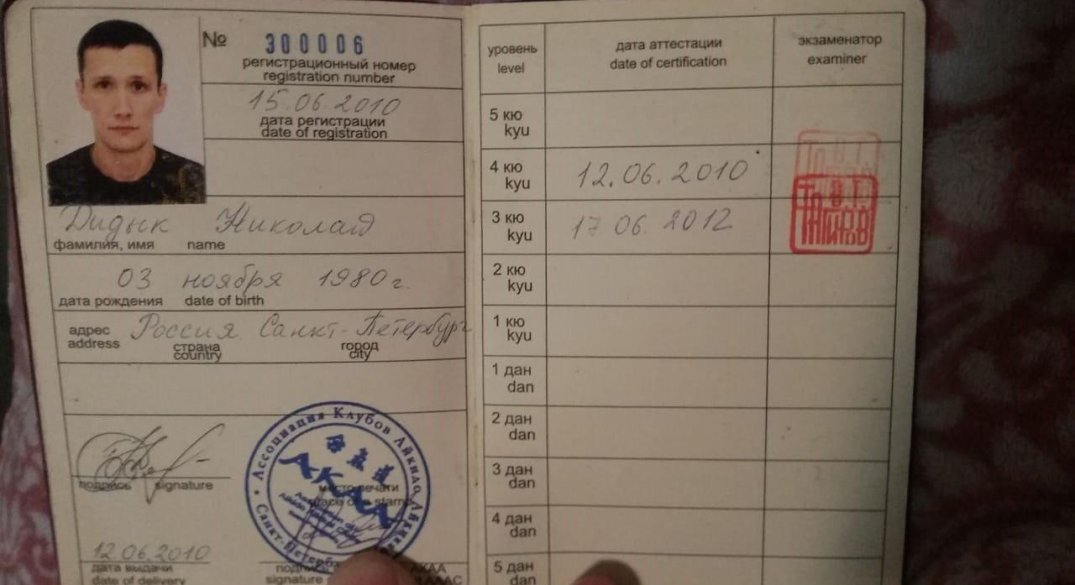 № 300006
регистрационный номер
registration number
15.06.2010
дата регистрации
date of registration
Дидык Николай
фамилия, имя name
03 ноября 1980 г.
дата рождения date of birth
адрес Россия Санкт-Петербург
address страна город
country city
подпись signature
Ассоциация Клубов Айкидо Айкикай
АКАА
место печати
12.06.2010
дата выдачи
date of delivery
signature
уровень дата аттестации экзаменатор
level date of certification examiner
5 кю
kyu
4 кю 12.06.2010
kyu
3 кю 17 06. 2012
kyu
2 кю
kyu
1 кю
kyu
1 дан
dan
2 дан
dan
3 дан
dan
4 дан
dan
5 дан
dan